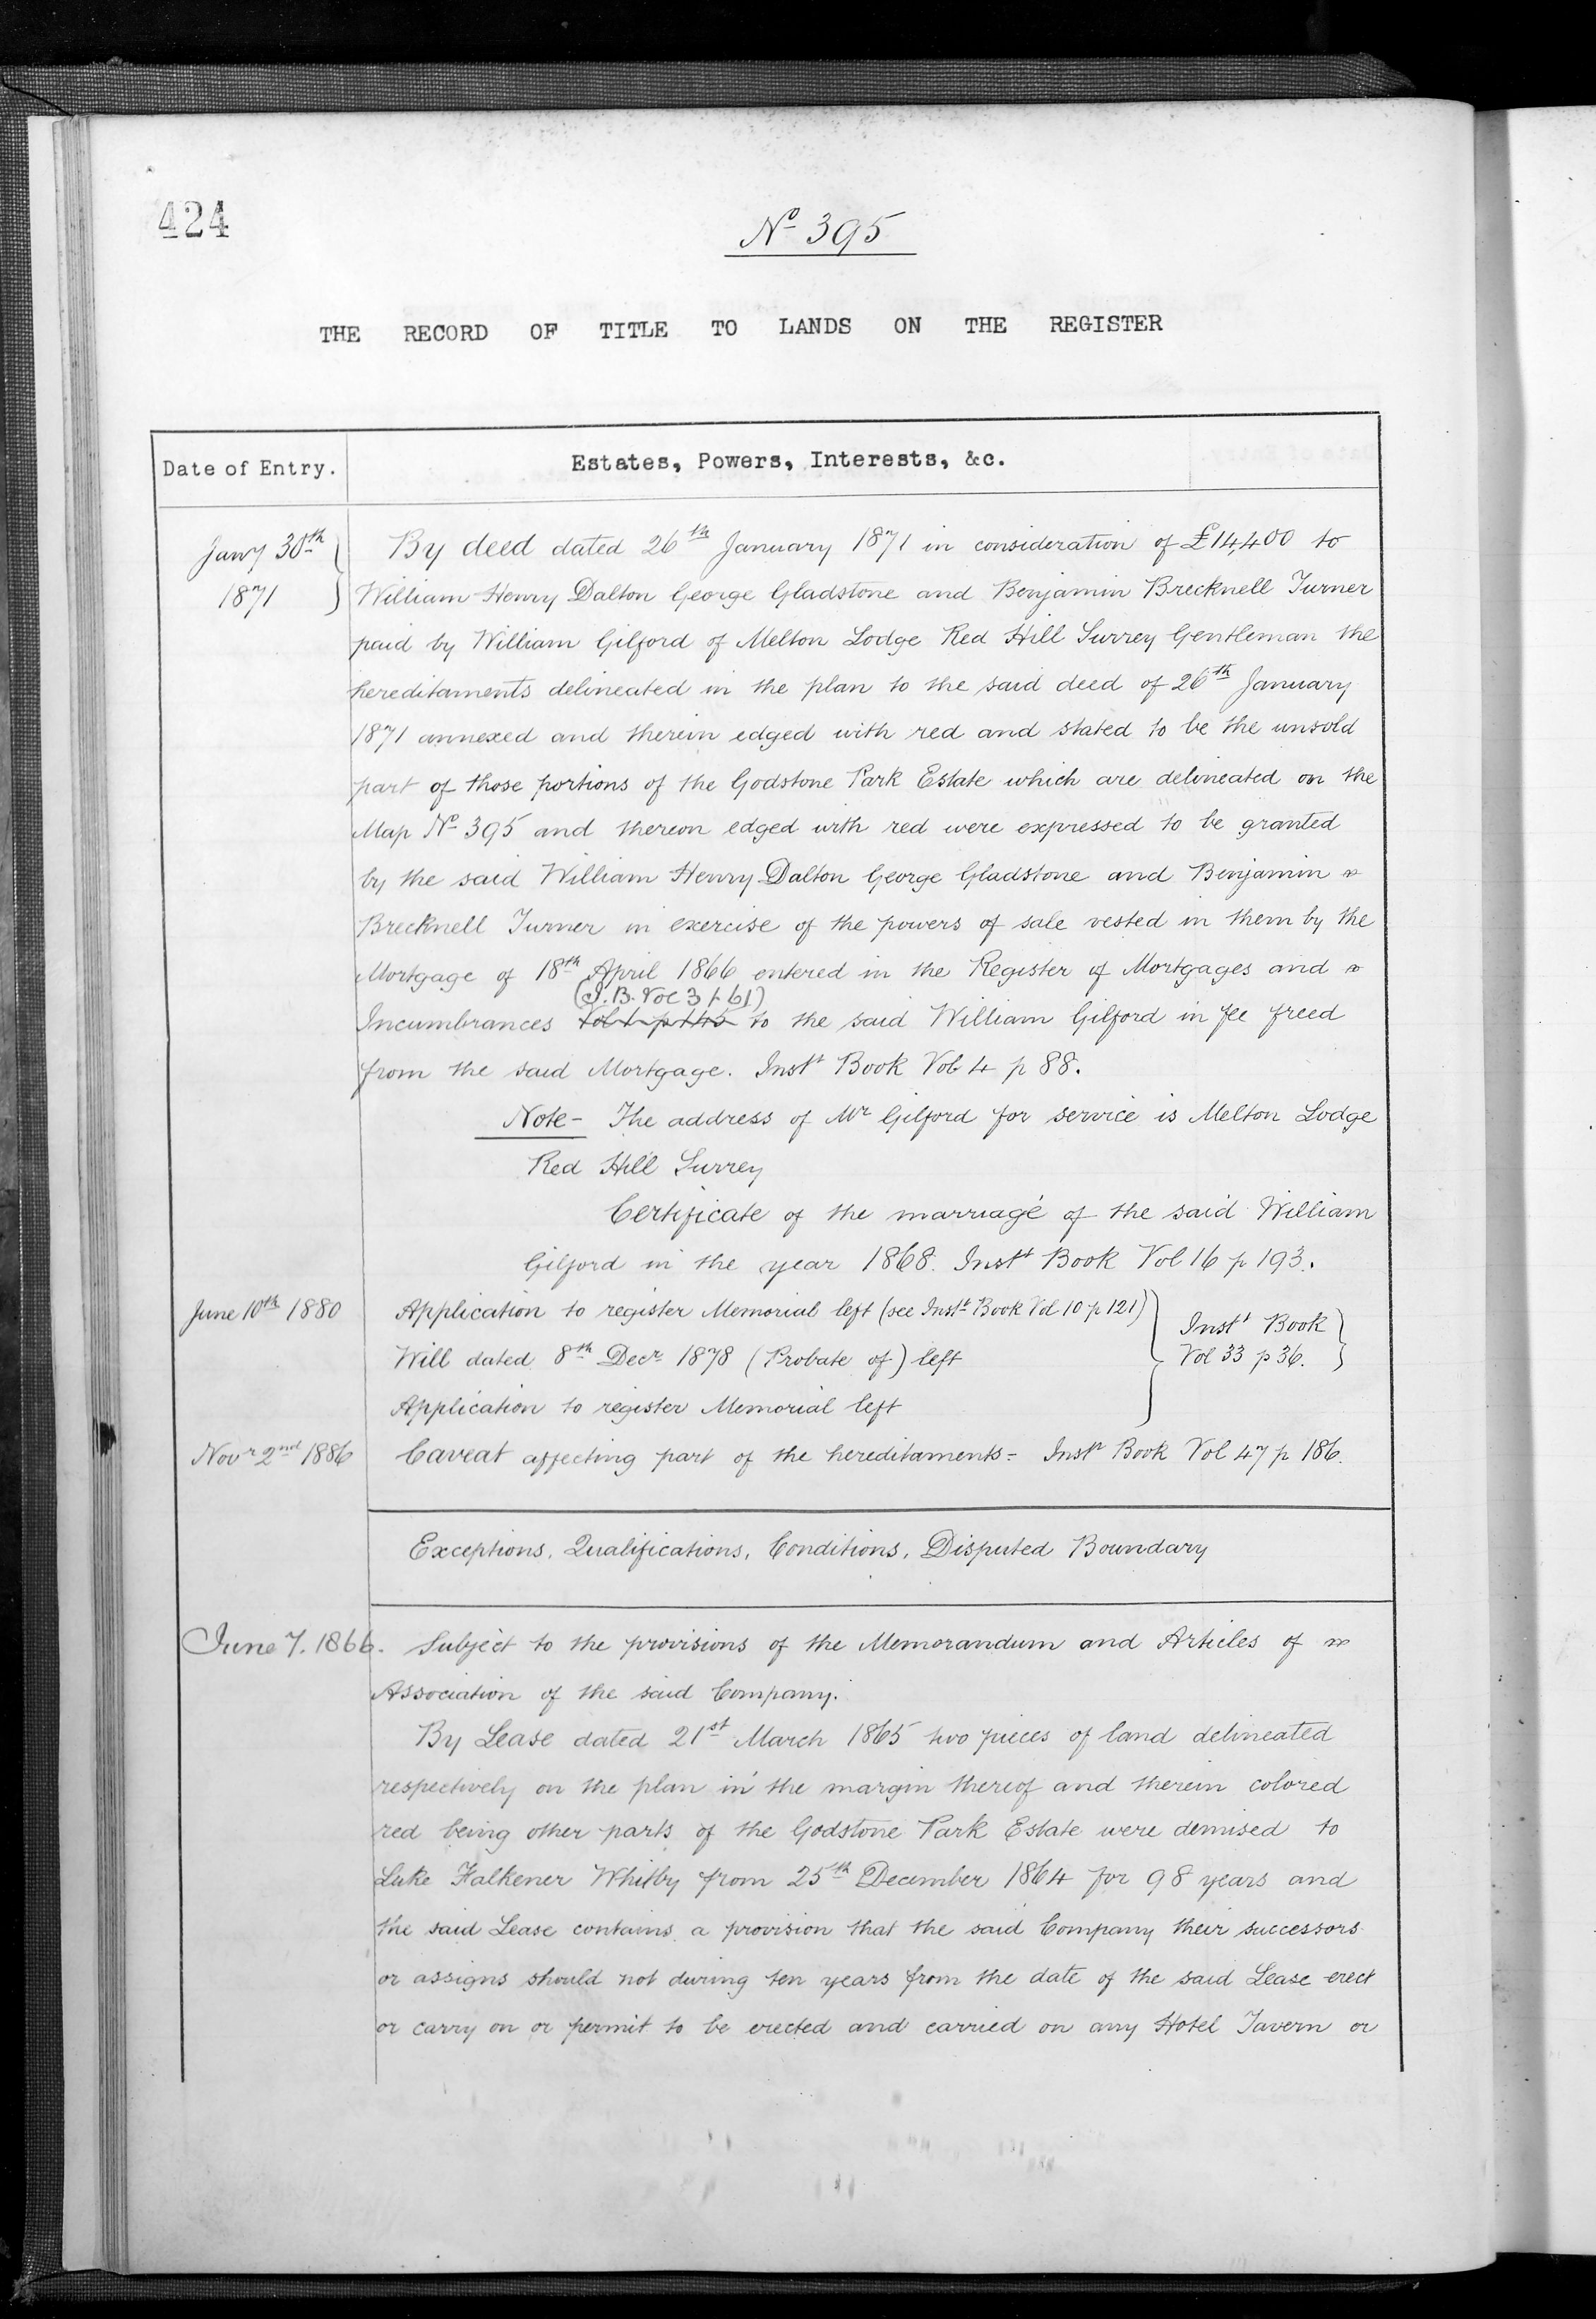 424
No 395
THE RECORD OF TITLE TO LANDS ON THE REGISTER
Date of Entry.
Estates, Powers, Interests, &c.
Jany 30th
1871
By deed dated 26th January 1871 in consideration of £14,400 to
William Henry Dalton George Gladstone and Benjamin Brecknell Turner
paid by William Gilford of Melton Lodge Red Hill Surrey Gentleman the
hereditaments delineated in the plan to the said deed of 26th January
1871 annexed and therein edged with red and stated to be the unsold
part of those portions of the Godstone Park Estate which are delineated on the
Map No 395 and thereon edged with red were expressed to be granted
by the said William Henry Dalton George Gladstone and Benjamin
Brecknell Turner in exercise of the powers of sale vested in them by the
Mortgage of 18th April 1866 entered in the Register of Mortgages and
(I.B. Vol 3 p 61)
Incumbrances Vol 1 p 145 to the said William Gilford in fee freed
from the said Mortgage. Instt Book Vol 4 p 88.
Note - The address of Mr Gilford for service is Melton Lodge
Red Hill Surrey
Certificate of the marriage of the said William
Gilford in the year 1868. Instt Book Vol 16 p 193.
June 10th 1880
Application to register Memorial left (see Instt Book Vol 10 p 121)
Will dated 8th Decr 1878 (Probate of) left
Application to register Memorial left
Instt Book
Vol 33 p 36.
Novr 2nd 1886
Caveat affecting part of the hereditaments = Instt Book Vol 47 p 186.
Exceptions, Qualifications, Conditions, Disputed Boundary
June 7. 1866.
Subject to the provisions of the Memorandum and Articles of
Association of the said Company.
By Lease dated 21st March 1865 two pieces of land delineated
respectively on the plan in the margin thereof and therein colored
red being other parts of the Godstone Park Estate were demised to
Luke Falkener Whitby from 25th December 1864 for 98 years and
the said Lease contains a provision that the said Company their successors
or assigns should not during ten years from the date of the said Lease erect
or carry on or permit to be erected and carried on any Hotel Tavern or